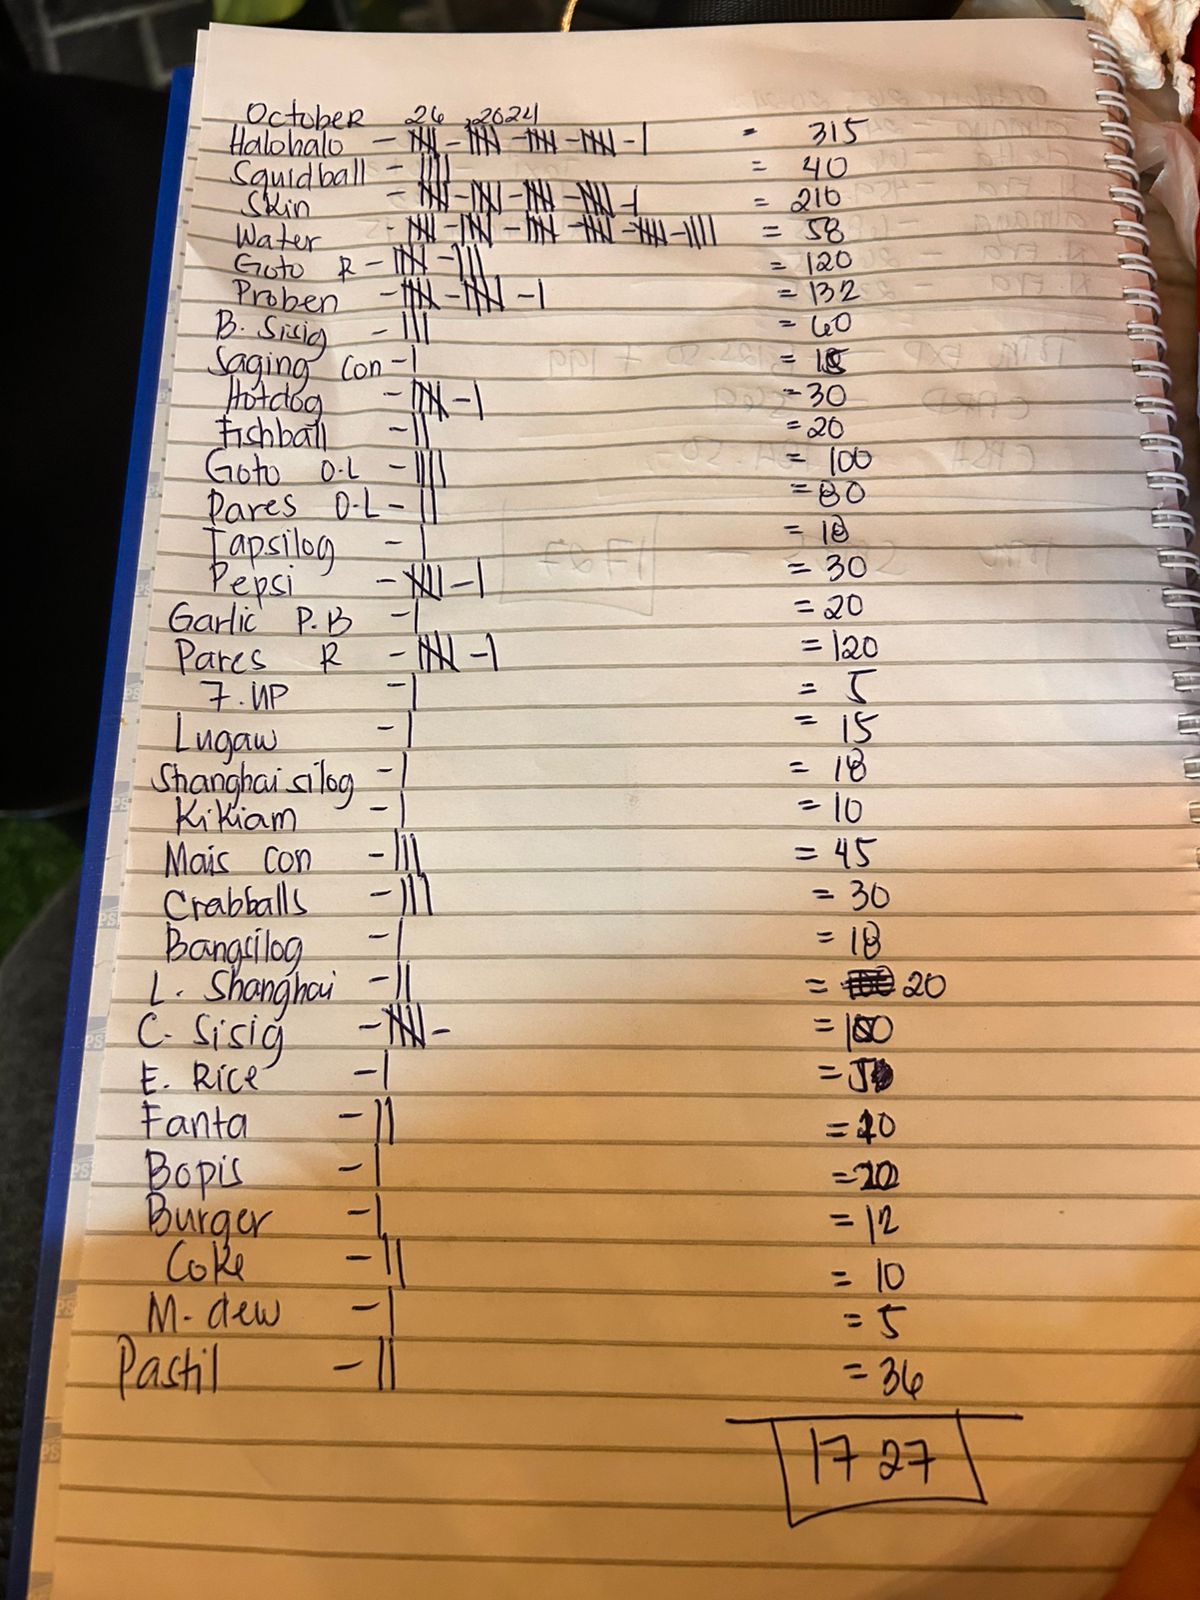 October 26, 2024
Halohalo - 卌 - 卌 - 卌 - 卌 - | = 315
Squidball - |||| = 40
Skin - 卌 - 卌 - 卌 - 卌 - | = 210
Water - 卌 - 卌 - 卌 - 卌 - 卌 - |||| = 58
Goto R - 卌 - ||| = 120
Proben - 卌 - 卌 - | = 132
B. Sisig - ||| = 60
Saging Con - | = 15
Hotdog - 卌 - | = 30
Fishball - || = 20
Goto O.L - |||| = 100
Pares O.L - || = 80
Tapsilog - | = 18
Pepsi - 卌 - | = 30
Garlic P.B - | = 20
Pares R - 卌 - | = 120
7.UP - | = 5
Lugaw - | = 15
Shanghai silog - | = 18
Kikiam - | = 10
Mais Con - ||| = 45
Crabballs - ||| = 30
Bangsilog - | = 18
L. Shanghai - || = 20
C. Sisig - 卌 - = 100
E. Rice - | =
Fanta - || = 10
Bopis - | = 20
Burger - | = 12
Coke - || = 10
M. dew - | = 5
Pastil - || = 36
1727